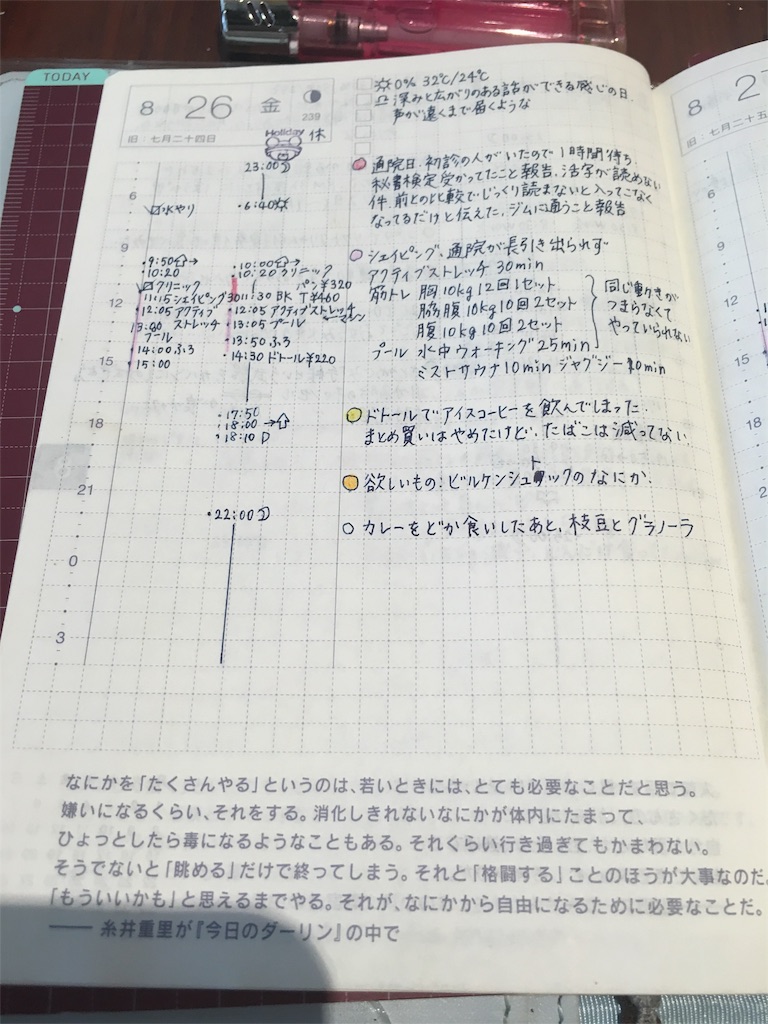 TODAY
8 26 金
239
旧：七月二十四日
Holiday 休
0% 32℃/24℃
深みと広がりのある話ができる感じの日.
声が遠くまで届くような
通院日.初診の人がいたので1時間待ち.
秘書検定受かってたこと報告.活字が読めない
件、前との比較でじっくり読まないと入ってこなく
なってるだけと伝えた.ジムに通うこと報告
シェイピング、通院が長引き出られず
アクティブストレッチ 30min
筋トレ 胸10kg 12回1セット
脇腹10kg 10回2セット
腹10kg 10回2セット
同じ動きが
つまらなくて
やっていられない
プール 水中ウォーキング 25min
ミストサウナ10min ジャグジー10min
ドトールでアイスコーヒーを飲んでしまった.
まとめ買いはやめたけど、たばこは減ってない.
欲しいもの：ビルケンシュトックのなにか.
カレーをどか食いしたあと、枝豆とグラノーラ
6
9
12
15
18
21
0
3
水やり
・9:50→
10:20
クリニック
11:15 シェイピング30
・12:05 アクティブ
ストレッチ
13:00
プール
・14:00 ふろ
・15:00
23:00
・6:40
・10:00→
・10:20 クリニック
パン¥320
11:30 BK T¥460
・12:05 アクティブストレッチ
・13:05 プール
・13:50 ふろ
・14:30 ドトール¥220
・17:50
・18:00 →
・18:10 D
・22:00
8 2
旧：七月二十五
12
15
なにかを「たくさんやる」というのは、若いときには、とても必要なことだと思う。
嫌いになるくらい、それをする。消化しきれないなにかが体内にたまって、
ひょっとしたら毒になるようなこともある。それくらい行き過ぎてもかまわない。
そうでないと「眺める」だけで終ってしまう。それと「格闘する」ことのほうが大事なのだ。
「もういいかも」と思えるまでやる。それが、なにかから自由になるために必要なことだ。
── 糸井重里が『今日のダーリン』の中で